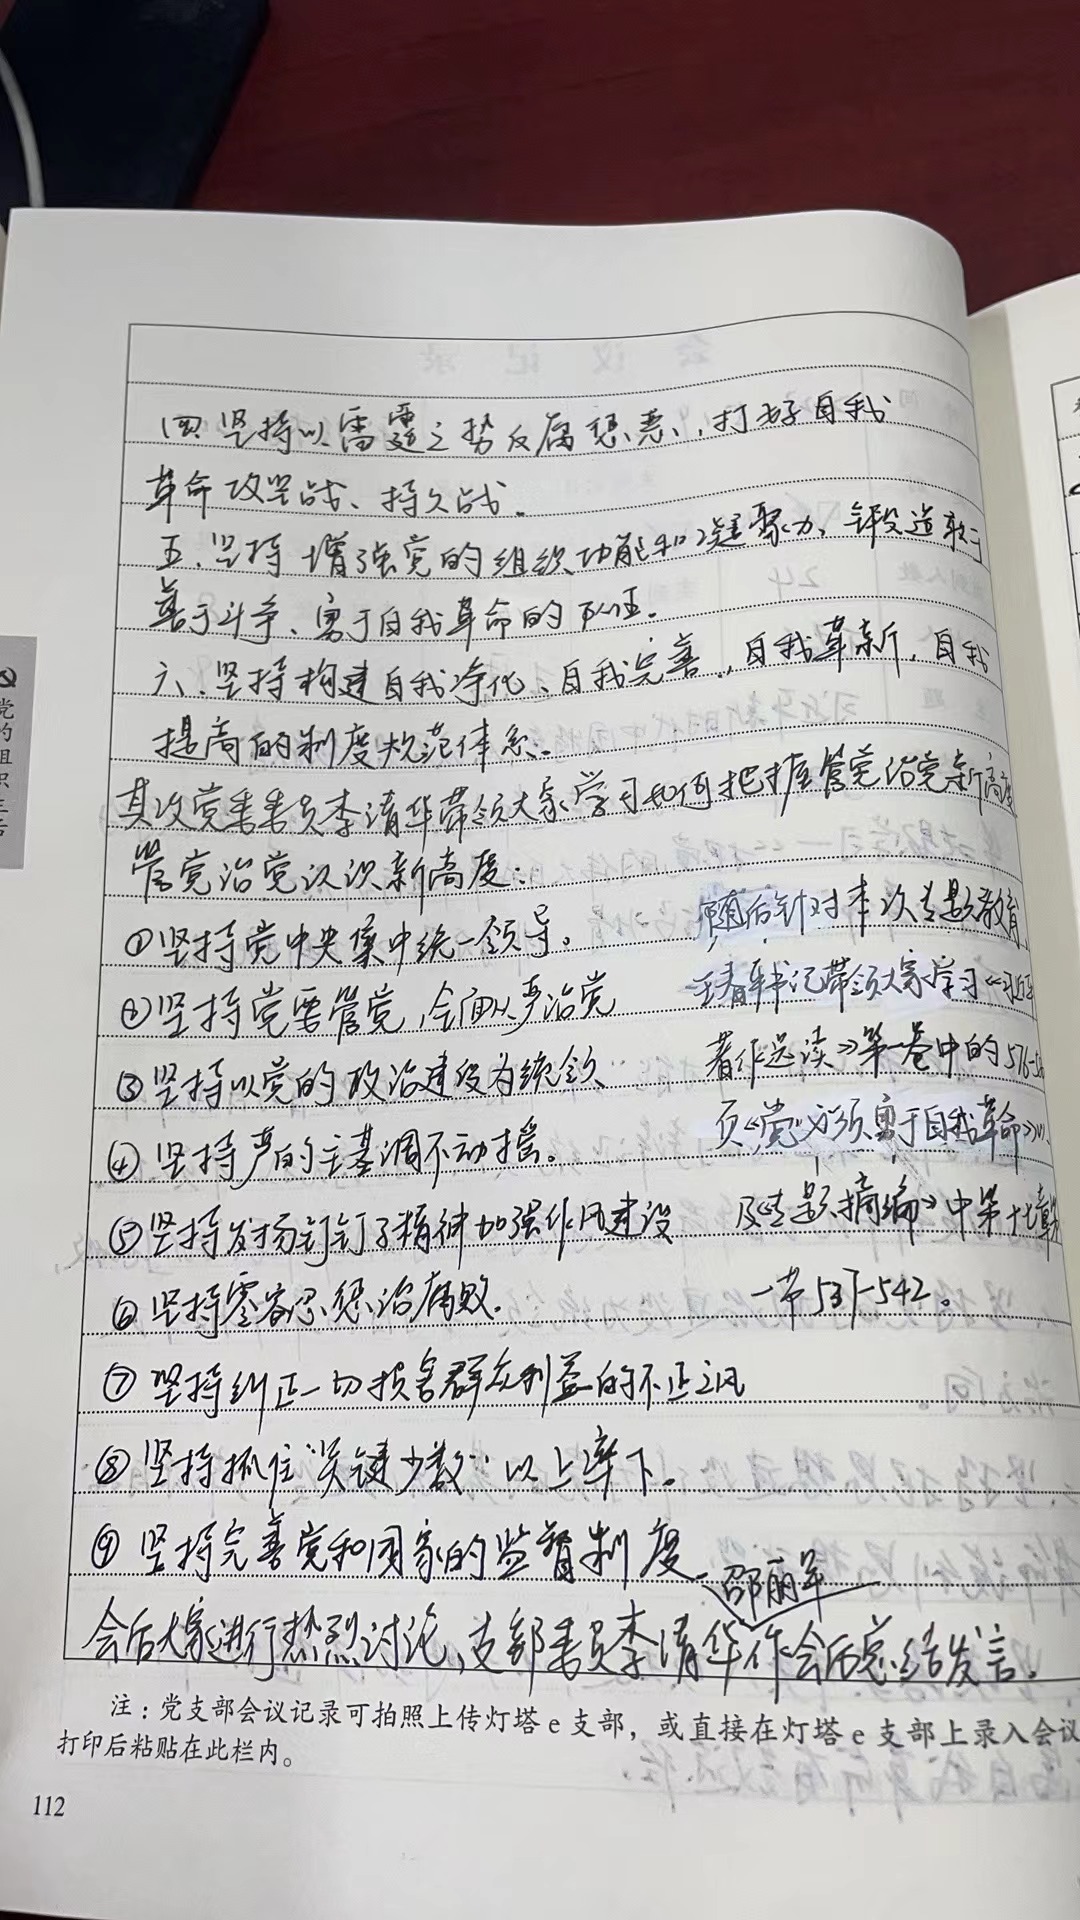 四、坚持以雷霆之势反腐惩恶，打好自我
革命攻坚战、持久战。
五、坚持增强党的组织功能和凝聚力，锻造敢于
善于斗争、勇于自我革命的队伍。
六、坚持构建自我净化、自我完善，自我革新，自我
提高的制度规范体系。
其次党委委员李清华带领大家学习如何把握管党治党新高度
管党治党认识新高度：
①坚持党中央集中统一领导。
②坚持党要管党，全面从严治党
③坚持以党的政治建设为统领
④坚持严的主基调不动摇。
⑤坚持发扬钉钉子精神加强作风建设
⑥坚持零容忍惩治腐败.
⑦坚持纠正一切损害群众利益的不正之风
⑧坚持抓住"关键少数"以上率下。
⑨坚持完善党和国家的监督制度
随后针对本次专题教育，
王春军书记带领大家学习《习近平
著作选读》第一卷中的576-58
页《党必须勇于自我革命》以
及《专题摘编》中第十七章第
一节537-542。
邵丽军
会后大家进行热烈讨论，支部委员李清华作会后总结发言。
注：党支部会议记录可拍照上传灯塔e支部，或直接在灯塔e支部上录入会议
打印后粘贴在此栏内。
112
党的组织生活